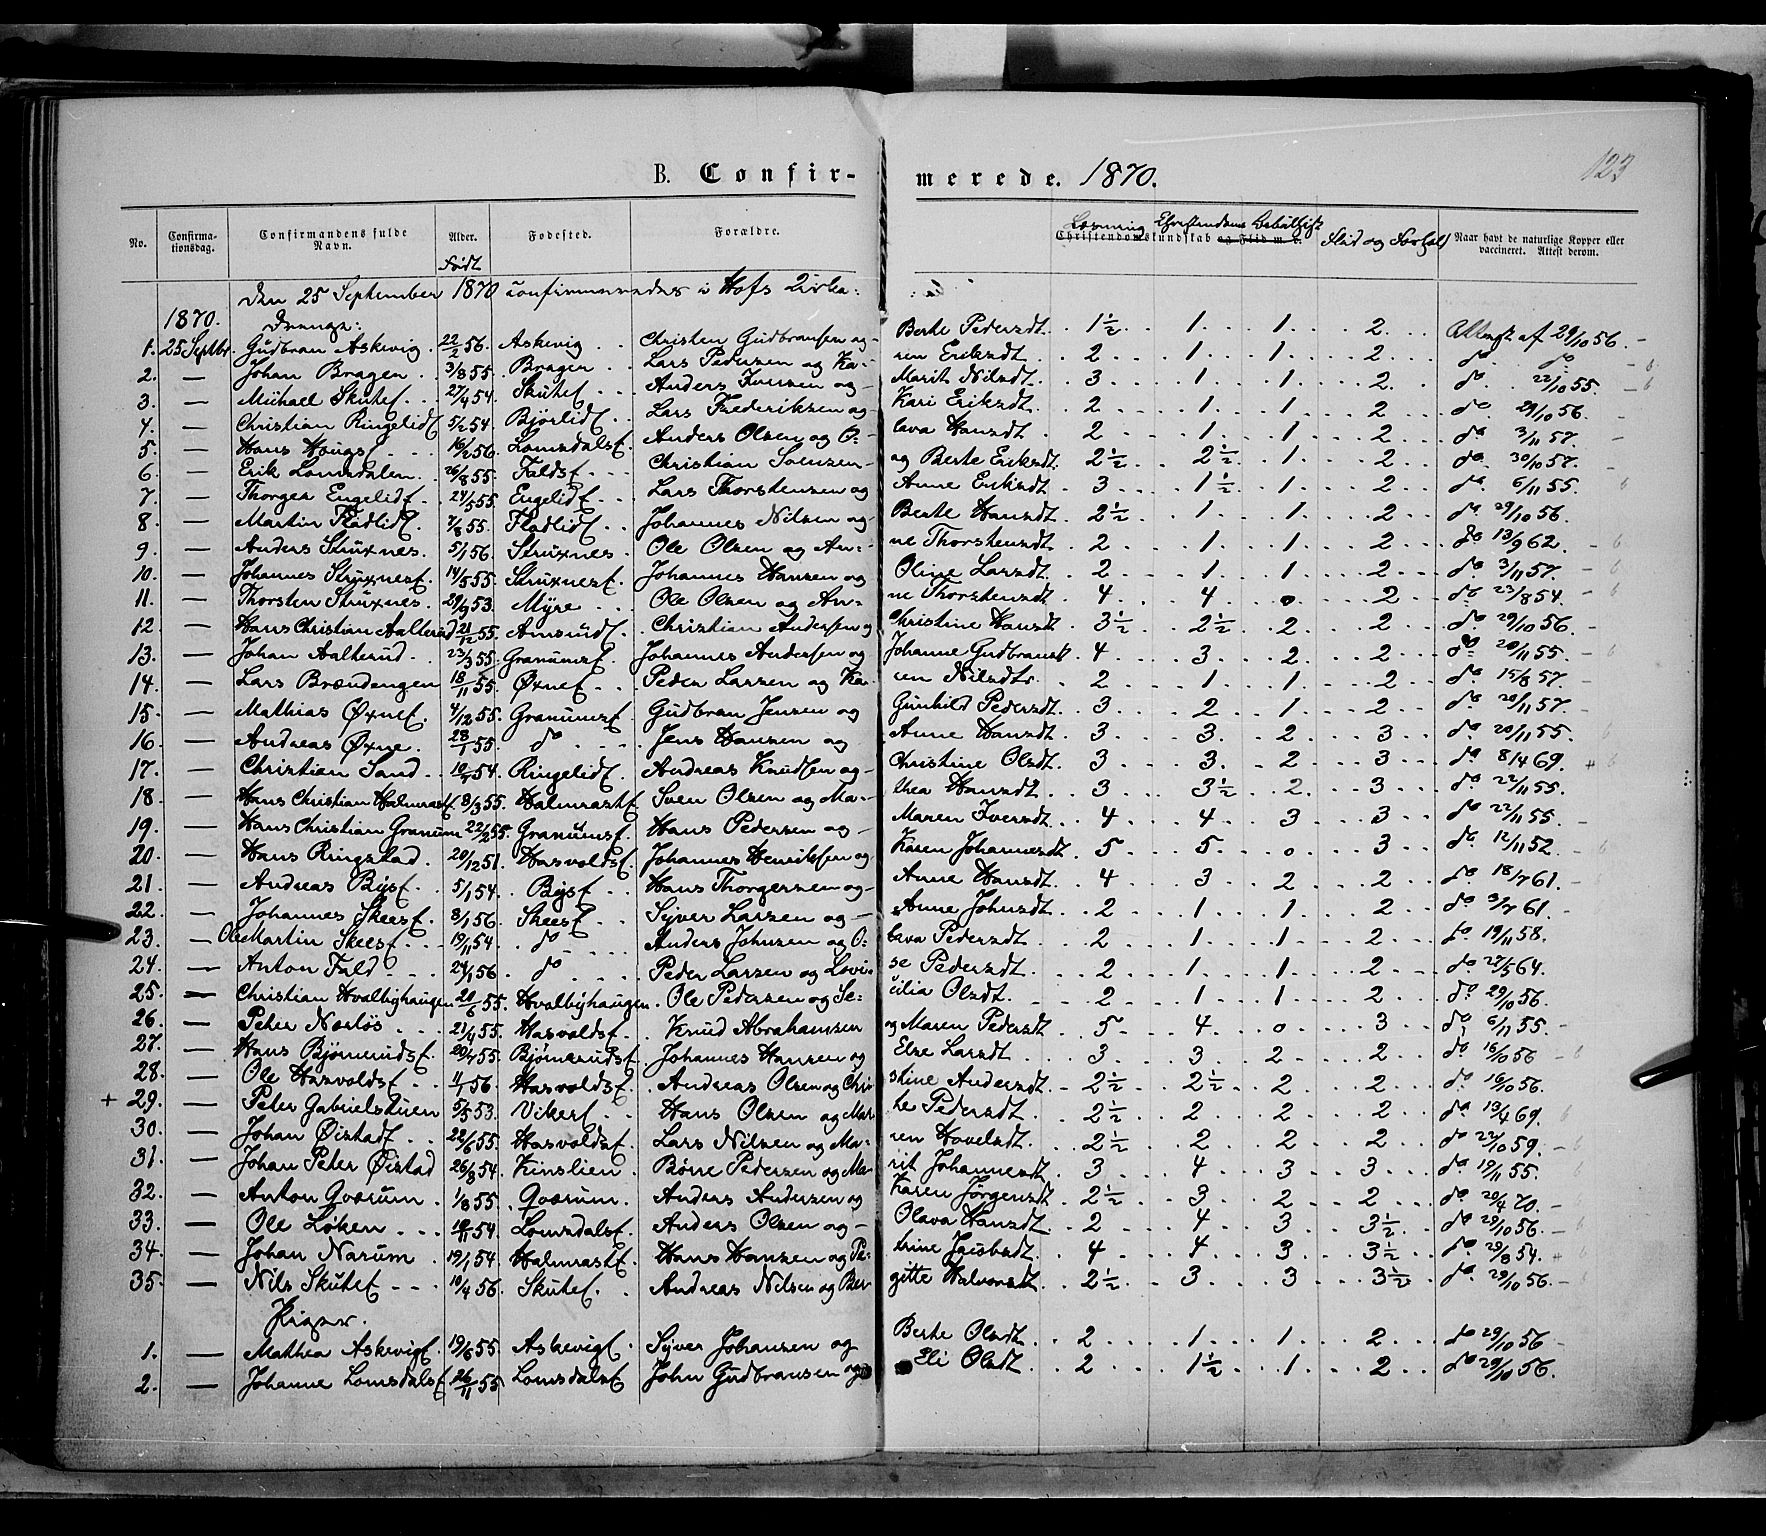 B. Confir-merede. 1870.
123
No. Confirma-tionsdag. Confirmandens fulde Navn. Alder. Født Fødested. Forældre. Læsning Christendomskundskab og Flid m. v. Flid og Forhol Naar havt de naturlige Kopper eller vaccineret. Attest derom.
Den 25 September 1870 confirmeredes i Hofs Kirke:
1870. Drenge:
1. 25 Septbr. Gudbran Askevig 22/2 56. Askevig Christen Gudbransen og Berte Pedersdt. 1½ 1 1 2 Attest af 29/10 56.
2. — Johan Bragen 3/8 55. Bragen Lars Pedersen og Karen Eriksdt. 2 1 1 2 do do
3. — Michael Skutef. 27/4 54. Skutef. Anders Jensen og Marit Nilsdt. 3 1 1 2 do 22/10 55.
4. — Christian Ringelidf. 5/2 54. Bjørlidf. Lars Frederiksen og Kari Eriksdt. 2 1 1 2 do 29/10 56.
5. — Hans Haugsf. 16/2 56. Lomsdalsf. Anders Olsen og Olava Hansdt. 2 1 1 2 do 3/11 57.
6. — Erik Lomsdalen 26/8 55. Faldsf. Christian Svensen og Berte Eriksdt. 2½ 2½ 1 2 do 30/10 57.
7. — Thorger Engelidf. 24/5 55. Engelidf. Lars Thorstensen og Anne Eriksdt. 3 1½ 1 2 do 6/11 55.
8. — Martin Fladlidf. 7/8 55. Fladlidf. Johannes Nilsen og Berte Hansdt. 2½ 1 1 2 do 29/10 56.
9. — Anders Struxnes. 5/1 56. Struxnes Ole Olsen og Anne Thorstensdt. 2 1 1 2 do 13/9 62.
10. — Johannes Struxnesf. 14/5 55. Struxnesf. Johannes Hansen og Oline Larsdt. 2 1 1 2 do 3/11 57.
11. — Thorsten Struxnes. 29/9 53. Myre Ole Olsen og Anne Thorstensdt. 4 4 0 2 do 23/8 54.
12. — Hans Christian Aalterud 21/12 55. Amundf. Christian Andersen og Christine Hansdt 3½ 2½ 2 2 do 29/10 56.
13. — Johan Aalterud. 23/3 55. Granumsf. Johannes Andersen og Johanne Gudbransdt 4 3 2 2 do 20/11 55.
14. — Lars Brændengen 18/11 55. Øxnef. Peder Larsen og Karen Nilsdtr. 2 1 1 2 do 15/8 57.
15. — Mathias Øxnef. 4/12 55. Granumsf. Gudbran Jensen og Gunhild Pedersdt. 3 2 1 2 do 20/11 57.
16. — Andreas Øxne. 28/1 55. do Jens Hansen og Anne Hansdt 3 3 2 3 do 20/11 55.
17. — Christian Sand 54. Ringelidf. Andreas Knudsen og Christine Olsdt. 3 3 2 3 do 8/4 69. +
18. — Hans Christian Halmrastf. 8/3 55. Halmrastf. Sven Olsen og Mathea Hansdt 3 3½ 2 3 do 22/11 55.
19. — Hans Christian Granum 22/2 55. Granumsf. Hans Pedersen og Maren Iversdt. 4 4 3 3 do 22/11 55.
20. — Hans Ringstad. 20/12 51. Hasvoldsf. Johannes Henriksen og Karen Johannesdt 5 5 0 3 do 12/11 52.
21. — Andreas Bÿsf. 5/1 54. Bÿsf. Hans Thorgersen og Anne Hansdt 4 3 2 2 do 18/7 61.
22. — Johannes Skeesf. 8/1 56. Skeesf. Syver Larsen og Anne Johnsdt 2 1 1 2 do 3/7 61.
23. — Ole Martin Skeesf. 19/11 54. do Anders Johnsen og Olava Pedersdt 2 1 1 2 do 19/11 58.
24. — Anton Fald 24/1 56. do Peder Larsen og Lovise Pedersdt 2 1 1 2 do 27/5 64.
25. — Christian Hvalbyhaugen 20/6 55. Hvalbyhaugen. Ole Pedersen og Secilia Olsdt. 2 1 1 2 do 29/10 56.
26. — Peter Nærløs 21/4 55. Hasvoldsf. Knud Abrahamsen og Maren Pedersdt 5 4 0 3 do 6/11 55.
27. — Hans Bjørnerudsf. 20/7 55. Bjørnerudsf. Johannes Hansen og Else Larsdt 3 3 2 2 do 16/10 56
28. — Ole Hasvoldsf. 11/1 56. Hasvoldsf. Andreas Olsen og Christine Andersdt 2½ 2½ 2 2 do 16/10 56.
+ 29. — Peter Gabrielstuen 5/5 53. Vikerf. Hans Olsen og Marthe Pedersdt 2½ 2 2 2 do 13/4 69.
30. — Johan Øistadf. 22/6 55. Hasvoldsf. Lars Nilsen og Maren Hovelsdt 2½ 2 2 2 do 22/10 59.
31. — Johan Peter Øistad 26/8 54. Kinslien. Børre Pedersen og Marit Johannesdt 3 4 3 3 do 19/11 55.
32. — Anton Gværum. 1/8 55. Gværum. Anders Andersen og Karen Jørgensdt 2½ 3 2 2 do 20/4 70.
33. — Ole Løken 54. Lomsdalsf. Anders Olsen og Olava Hansdt 2 4 3 3½ do 29/10 56.
34. — Johan Narum 19/1 54. Halmrastf. Hans Hansen og Petrine Jacobsdt. 4 4 3 3½ do 29/8 54.
35. — Nils Skutef 10/4 56. Skutef. Andreas Nilsen og Bergitte Halvorsdt 2½ 3 3 3½ do 29/10 56.
Piger.
1. — Mathea Askevigf. 19/6 55. Askevigf. Syver Johansen og Berte Olsdt 2 1 1 2 do 29/10 56
2. — Johanne Lomsdalsf 26/11 55 Lomsdalsf John Gudbransen og Eli Olsdt 2 1½ 1 2 do 29/10 56.